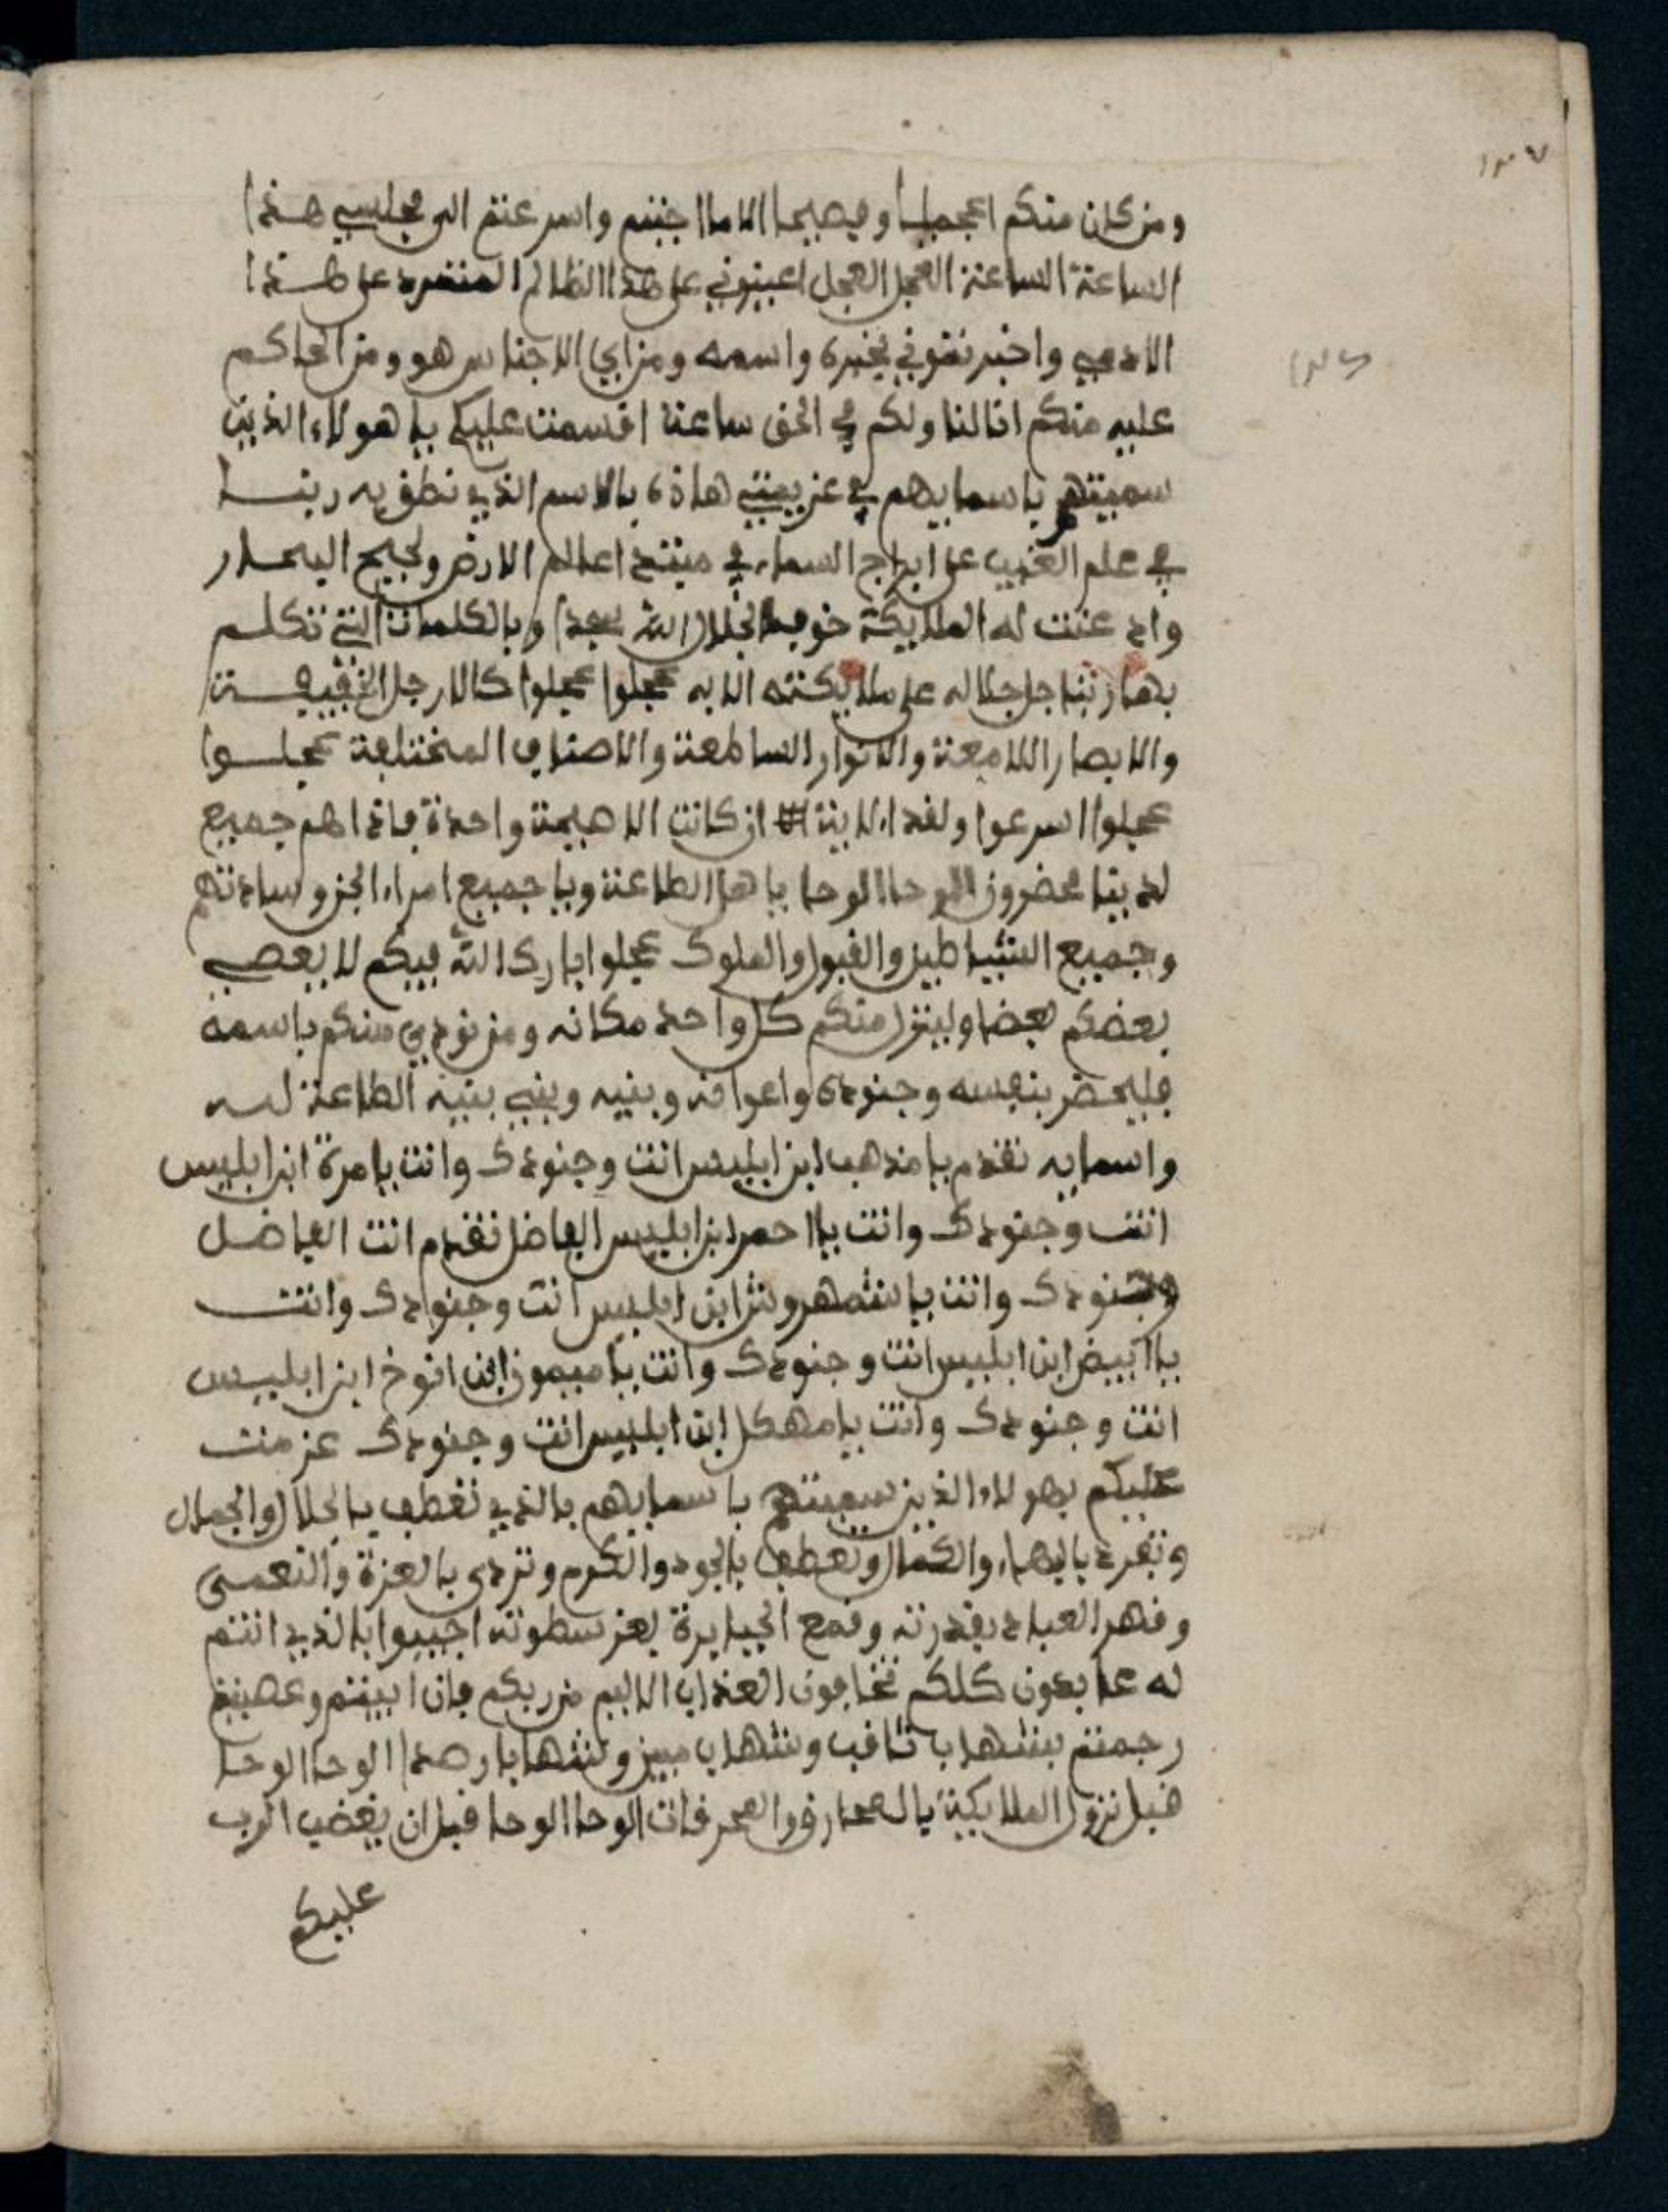 ومن كان منكم اعجميا وفصيحا الا ما اجبتم واسرعتم الى مجلسي هذا
الساعة الساعة العجل العجل اعينوني على هذا الظالم المتمرد على هذا
الادمي واخبرتموني بخبره واسمه ومن اي الاجناس هو ومن الحاكم
عليه منكم انا لنا ولكم في الحق ساعة اقسمت عليكم يا هولاء الذين
سميتهم باسمايهم في عزيمتي هاذه بالاسم الذي نطق به ربنا
في علم الغيب على ابراج السماء في اعالم الارض ولجيج البحار
واد عنت له الملايكة خوفا لجلال الله وبالكلمات التي تكلم
بها ربنا جل جلاله على ملايكته الا به عجلوا عجلوا كالارجل الخفيفة
والابصار اللامعة والانوار الساطعة والاصناف المختلفة عجلوا
عجلوا اسرعوا ولقد الاية # ان كانت الا صيحة واحدة فاذا هم جميع
لدينا محضرون الوحا الوحا يا هل الطاعة ويا جميع امراء الجن وساداتهم
وجميع الشياطين والقبول والملوك عجلوا بارك الله فيكم لا يعصي
بعضكم بعضا ولينزل منكم كل واحد مكانه ومن نودي منكم باسمه
فليحضر بنفسه وجنوده واعوانه وبنيه وبني بنيه الطاعة لله
واسمايه تقدم يا مذهب ابن ابليس انت وجنودك وانت يا مرة ابن ابليس
انت وجنودك وانت يا احمر ابن ابليس الفاضل تقدم انت الفاضل
وجنودك وانت يا شمهروش ابن ابليس انت وجنودك وانت
يا ابيض ابن ابليس انت وجنودك وانت يا ميمون ابن انوخ ابن ابليس
انت وجنودك وانت يا مهكل ابن ابليس انت وجنودك عزمت
عليكم بهولاء الذين سميتهم باسمايهم بالذي تعطف بالجلال والجمال
وتفرد بالبهاء والكمال وتعطف بالجود والكرم وتردى بالعزة والنعمى
وقهر العباد بقدرته وقمع الجبابرة بعز سطوته اجيبوا بالذي انتم
له عابدون كلكم تخافون العذاب الاليم من ربكم فان ابيتم وعصيتم
رجمتم بشهاب ثاقب وشهاب مبين وشهابا رصدا الوحا الوحا
قبل نزول الملايكة بالمحارق والمحرقات الوحا الوحا قبل ان يغضب الرب
عليكم